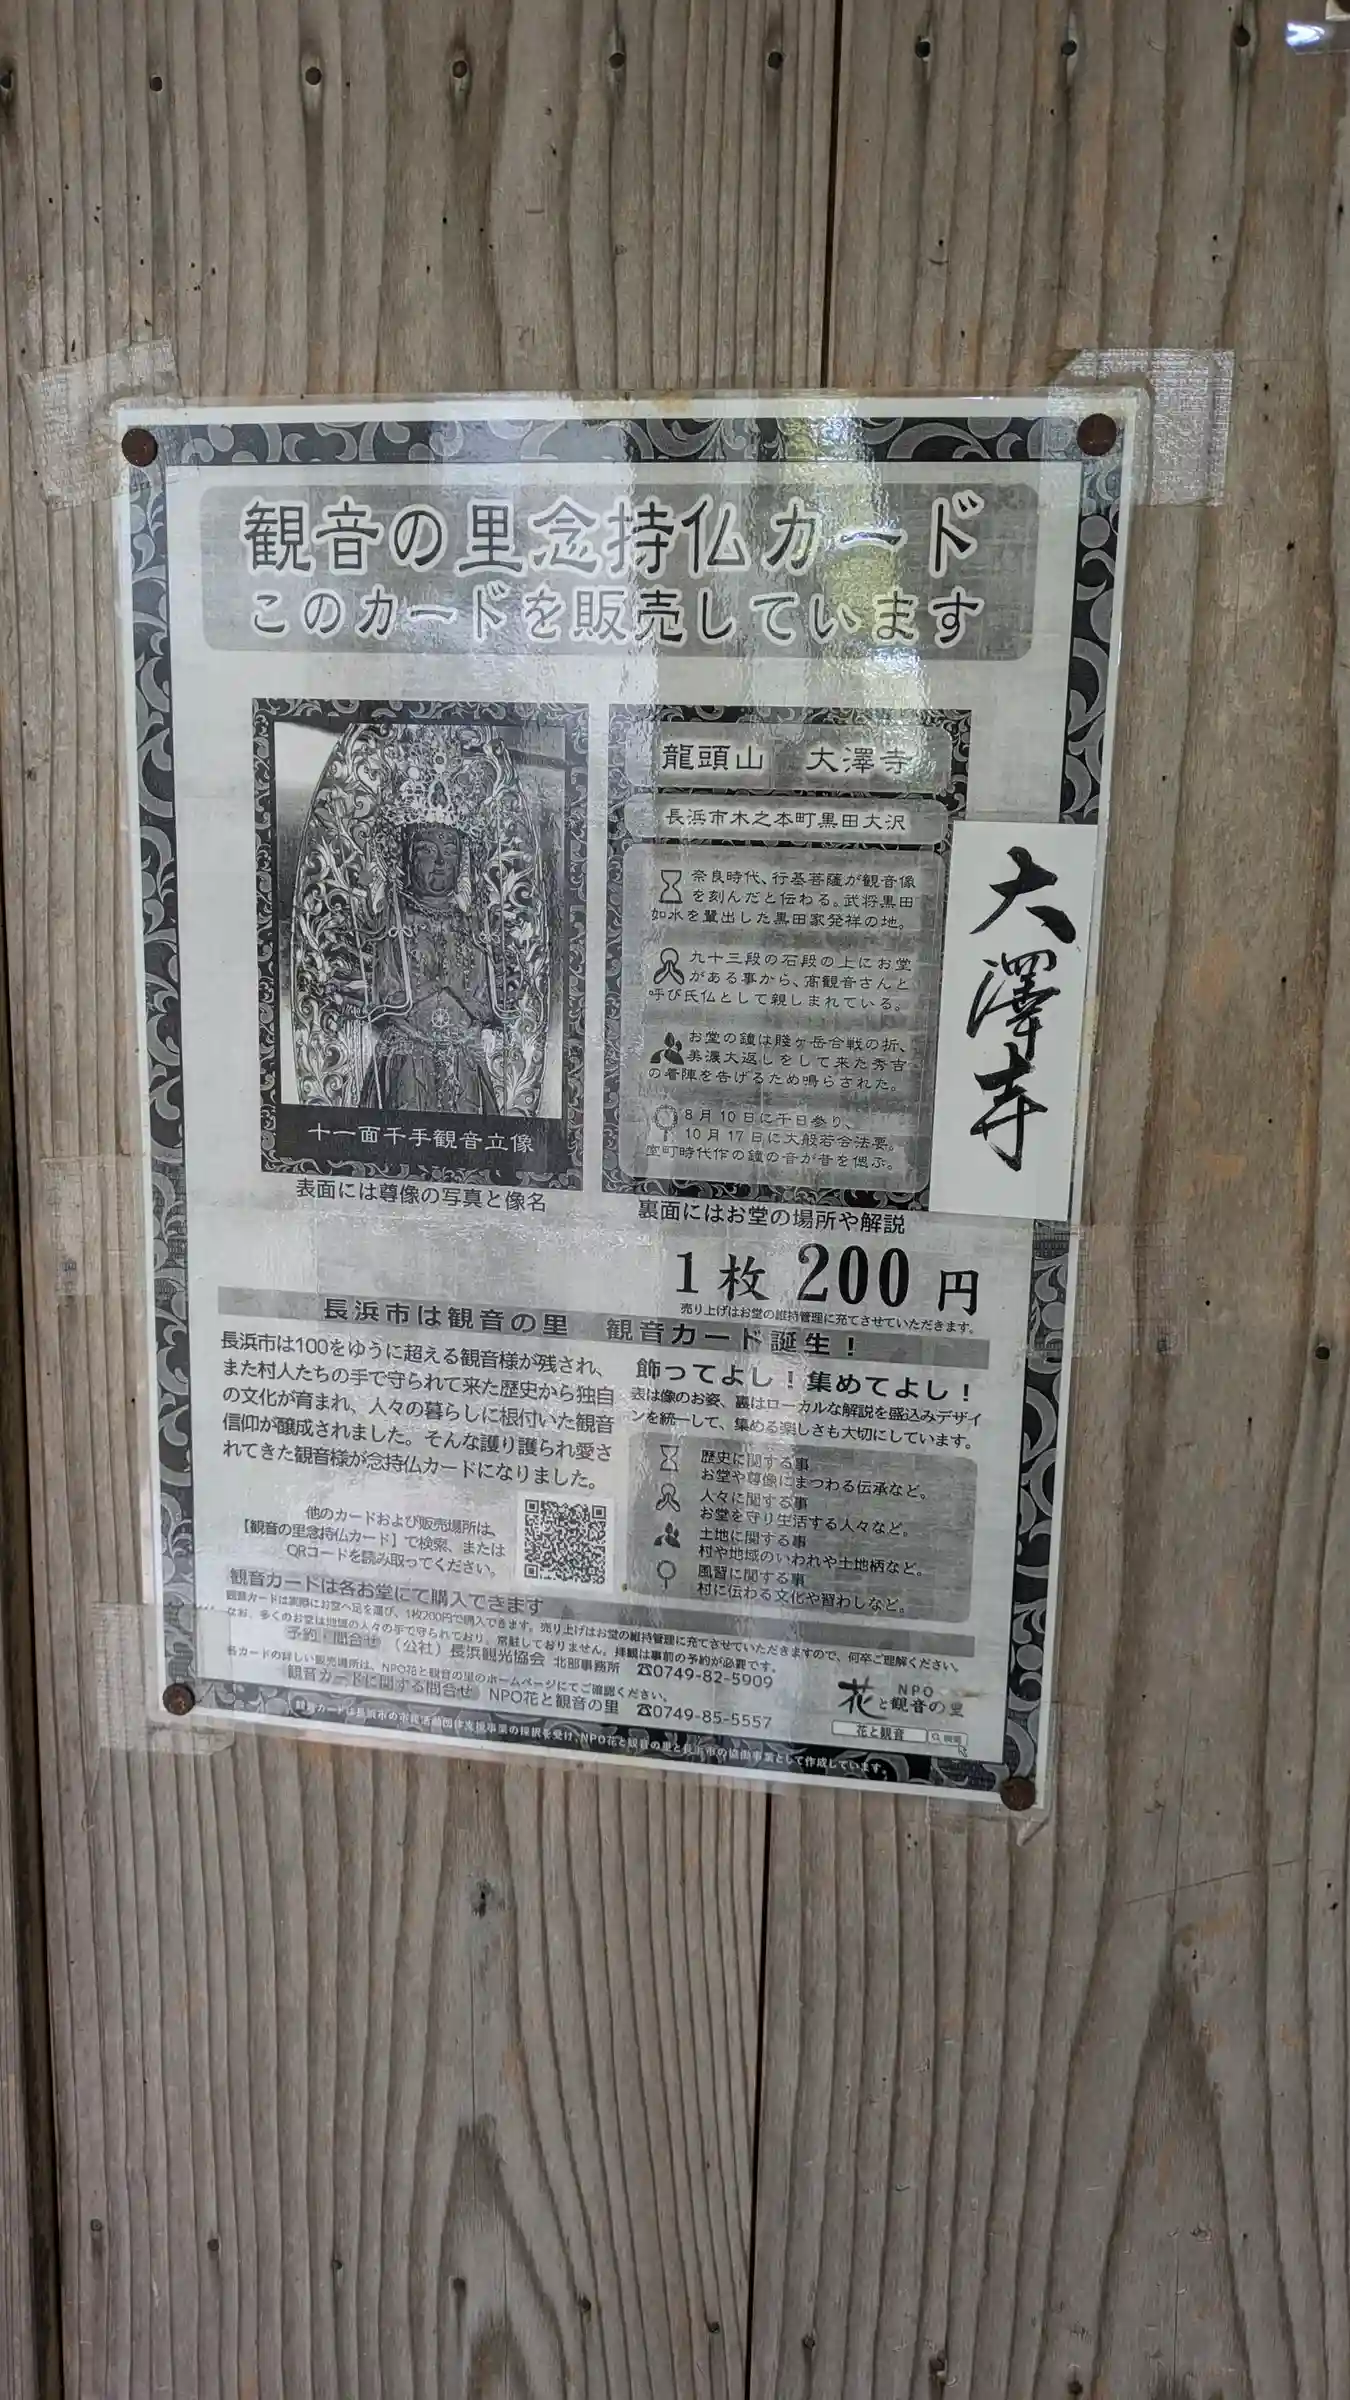 観音の里念持仏カード
このカードを販売しています
十一面千手観音立像
表面には尊像の写真と像名
龍頭山 大澤寺
長浜市木之本町黒田大沢
奈良時代、行基菩薩が観音像
を刻んだと伝わる。武将黒田
如水を輩出した黒田家発祥の地。
九十三段の石段の上にお堂
がある事から、高観音さんと
呼び氏仏として親しまれている。
お堂の鐘は賤ヶ岳合戦の折、
美濃大返しをして来た秀吉
の着陣を告げるため鳴らされた。
8月10日に千日参り、
10月17日に大般若会法要。
室町時代作の鐘の音が昔を偲ぶ。
裏面にはお堂の場所や解説
大澤寺
1枚 200円
売り上げはお堂の維持管理に充てさせていただきます。
長浜市は観音の里 観音カード誕生!
長浜市は100をゆうに超える観音様が残され、
また村人たちの手で守られて来た歴史から独自
の文化が育まれ、人々の暮らしに根付いた観音
信仰が醸成されました。そんな護り護られ愛さ
れてきた観音様が念持仏カードになりました。
他のカードおよび販売場所は、
【観音の里念持仏カード】で検索、または
QRコードを読み取ってください。
飾ってよし!集めてよし!
表は像のお姿、裏はローカルな解説を盛込みデザイ
ンを統一して、集める楽しさも大切にしています。
歴史に関する事
お堂や尊像にまつわる伝承など。
人々に関する事
お堂を守り生活する人々など。
土地に関する事
村や地域のいわれや土地柄など。
風習に関する事
村に伝わる文化や習わしなど。
観音カードは各お堂にて購入できます
観音カードは実際にお堂へ足を運び、1枚200円で購入できます。売り上げはお堂の維持管理に充てさせていただきますので、何卒ご理解ください。
なお、多くのお堂は地域の人々の手で守られており、常駐しておりません。拝観は事前の予約が必要です。
予約・問合せ (公社)長浜観光協会 北部事務所 ☎0749-82-5909
各カードの詳しい販売場所は、NPO花と観音の里のホームページにてご確認ください。
観音カードに関する問合せ NPO花と観音の里 ☎0749-85-5557
NPO
花と観音の里
花と観音
検索
観音カードは長浜市の市民活動団体支援事業の採択を受け、NPO花と観音の里と長浜市の協働事業として作成しています。